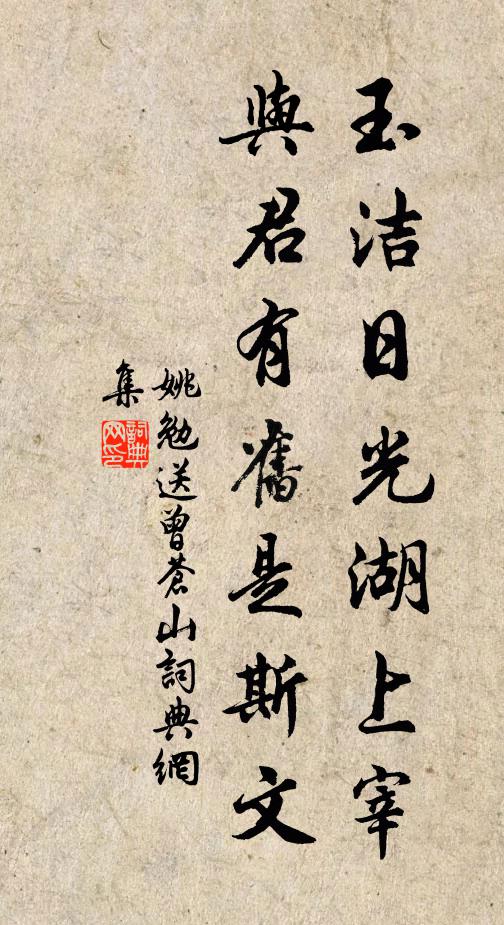 玉洁日光湖上宰
與君有舊是斯文
姚勉送曾蒼山詞典網
集
詞典
网印